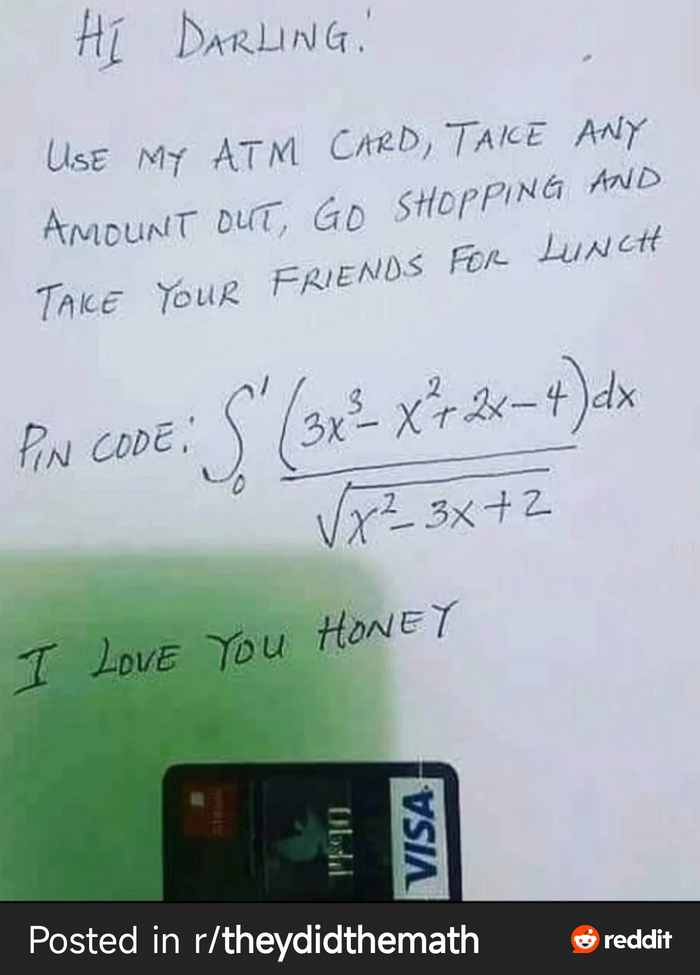 HI DARLING!
USE MY ATM CARD, TAKE ANY
AMOUNT OUT, GO SHOPPING AND
TAKE YOUR FRIENDS FOR LUNCH
PIN CODE: ∫₀¹ (3x³ - x² + 2x - 4)dx / √(x² - 3x + 2)
I LOVE YOU HONEY
VISA
Debit
Posted in r/theydidthemath reddit